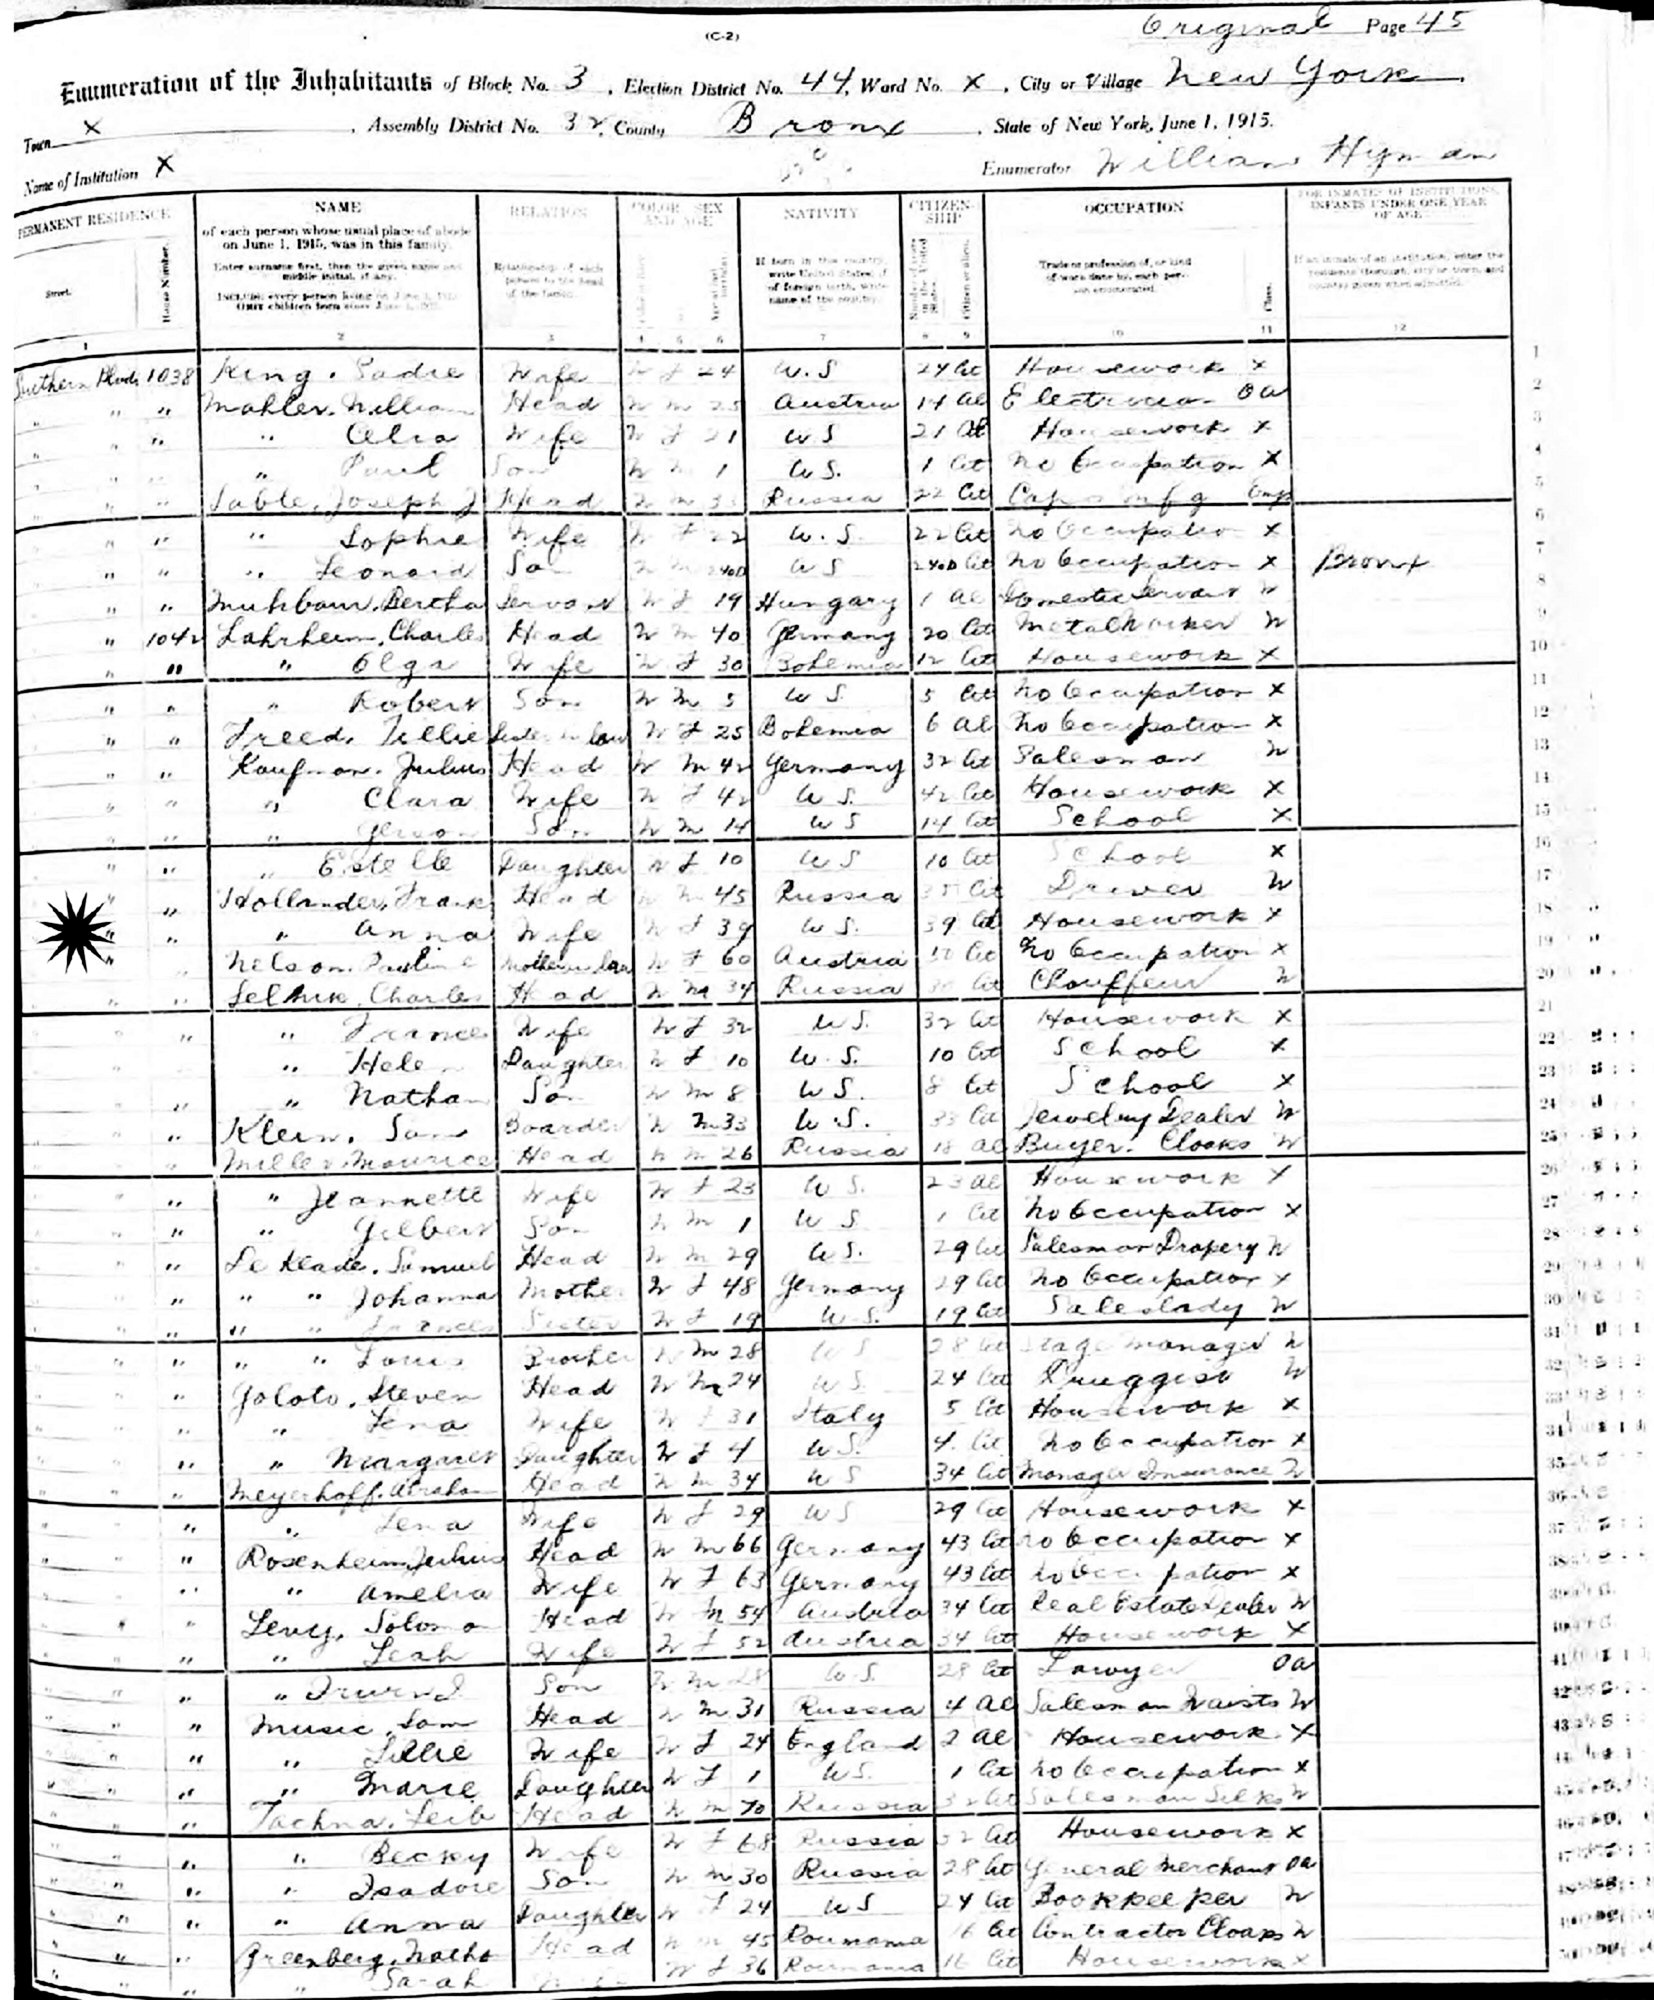 Original Page 45
(C-2)
Enumeration of the Inhabitants of Block No. 3, Election District No. 44, Ward No. X, City or Village New York
Town X, Assembly District No. 32, County Bronx, State of New York, June 1, 1915.
Name of Institution X Enumerator William Hyman
PERMANENT RESIDENCE NAME RELATION COLOR, SEX AND AGE NATIVITY CITIZENSHIP OCCUPATION FOR INMATES OF INSTITUTIONS, INFANTS UNDER ONE YEAR OF AGE
of each person whose usual place of abode on June 1, 1915, was in this family.
Enter surname first, then the given name and middle initial, if any.
INCLUDE every person living on June 1, 1915. OMIT children born since June 1, 1915.
Relationship of each person to the head of the family.
If born in this country, write United States; if of foreign birth, write name of the country.
Citizen or alien.
Trade or profession of, or kind of work done by, each person enumerated.
Class.
If an inmate of an institution, enter the residence (borough, city or town, and county) given when admitted.
Street. House Number.
1 2 3 4 5 6 7 8 9 10 11 12
Southern Blvd. 1038 King, Sadie Wife W F 24 U.S. 24 Cit Housework X 1
" " Mahler, William Head W M 25 Austria 14 Al Electrician OA 2
" " " Celia Wife W F 21 U S 21 Cit Housework X 3
" " " Paul Son W M 1 U S. 1 Cit No Occupation X 4
" " Sable, Joseph J Head W M Russia 22 Cit Caps Mfg Emp 5
" " " Sophie Wife W F 22 U.S. 22 Cit No Occupation X 6
" " " Leonard Son W M 240D U S 240D Cit No Occupation X Bronx 7
" " Muhbaur, Bertha Servant W F 19 Hungary 1 Al Domestic Servant W 8
" 1042 Lahrheim, Charles Head W M 40 Germany 20 Cit Metal Worker W 9
" " " Olga Wife W F 30 Bohemia 12 Cit Housework X 10
" " " Robert Son W M 5 U S. 5 Cit No Occupation X 11
" " Freed, Tillie Sister in law W F 25 Bohemia 6 Al No Occupation X 12
" " Kaufman, Julius Head W M 42 Germany 32 Cit Salesman W 13
" " " Clara Wife W F 42 U S. 42 Cit Housework X 14
" " " Gerson Son W M 14 U S 14 Cit School X 15
" " " Estelle Daughter W F 10 U S 10 Cit School X 16
" " Hollander, Frank Head W M 45 Russia Cit Driver W 17
" " " Anna Wife W F 39 U S. 39 Cit Housework X 18
" " Nelson, Pauline Mother in law W F 60 Austria Cit No Occupation X 19
" " Selnik, Charles Head W M 34 Russia Cit Chauffeur W 20
" " " Frances Wife W F 32 U S. 32 Cit Housework X 21
" " " Helen Daughter W F 10 U.S. 10 Cit School X 22
" " " Nathan Son W M 8 U S. 8 Cit School X 23
" " Klein, Sam Boarder W M 33 U.S. 33 Cit Jewelry Dealer W 24
" " Miller, Maurice Head W M 26 Russia 18 Al Buyer. Cloaks W 25
" " " Jeannette Wife W F 23 U S. 23 Al Housework X 26
" " " Gilbert Son W M 1 U S 1 Cit No Occupation X 27
" " Le Klade, Samuel Head W M 29 U S. 29 Cit Salesman Drapery W 28
" " " " Johanna Mother W F 48 Germany 29 Cit No Occupation X 29
" " " " Frances Sister W F 19 U.S. 19 Cit Saleslady W 30
" " " " Louis Brother W M 28 U S 28 Cit Stage Manager W 31
" " Goloto, Steven Head W M 24 U S. 24 Cit Druggist W 32
" " " Lena Wife W F 31 Italy 5 Cit Housework X 33
" " " Margaret Daughter W F 4 U S. 4 Cit No Occupation X 34
" " Meyerhoff, Abraham Head W M 34 U S 34 Cit Manager Insurance W 35
" " " Lena Wife W F 29 U S 29 Cit Housework X 36
" " Rosenheim, Julius Head W M 66 Germany 43 Cit No Occupation X 37
" " " Amelia Wife W F 63 Germany 43 Cit No Occupation X 38
" " Levy, Solomon Head W M 54 Austria 34 Cit Real Estate Dealer W 39
" " " Leah Wife W F 52 Austria 34 Cit Housework X 40
" " " Irwin I. Son W M 28 U.S. 28 Cit Lawyer OA 41
" " Music, Sam Head W M 31 Russia 4 Al Salesman Waists W 42
" " " Lillie Wife W F 24 England 2 Al Housework X 43
" " " Marie Daughter W F 1 U.S. 1 Cit No Occupation X 44
" " Tachna, Leib Head W M 70 Russia 32 Cit Salesman Silks W 45
" " " Becky Wife W F 68 Russia 32 Cit Housework X 46
" " " Isadore Son W M 30 Russia 28 Cit General Merchant OA 47
" " " Anna Daughter W F 24 U S 24 Cit Bookkeeper W
" " Greenberg, Nathan Head W M 45 Roumania 16 Cit Contractor Cloaks W
" " " Sarah W F 36 Roumania 16 Cit Housework X